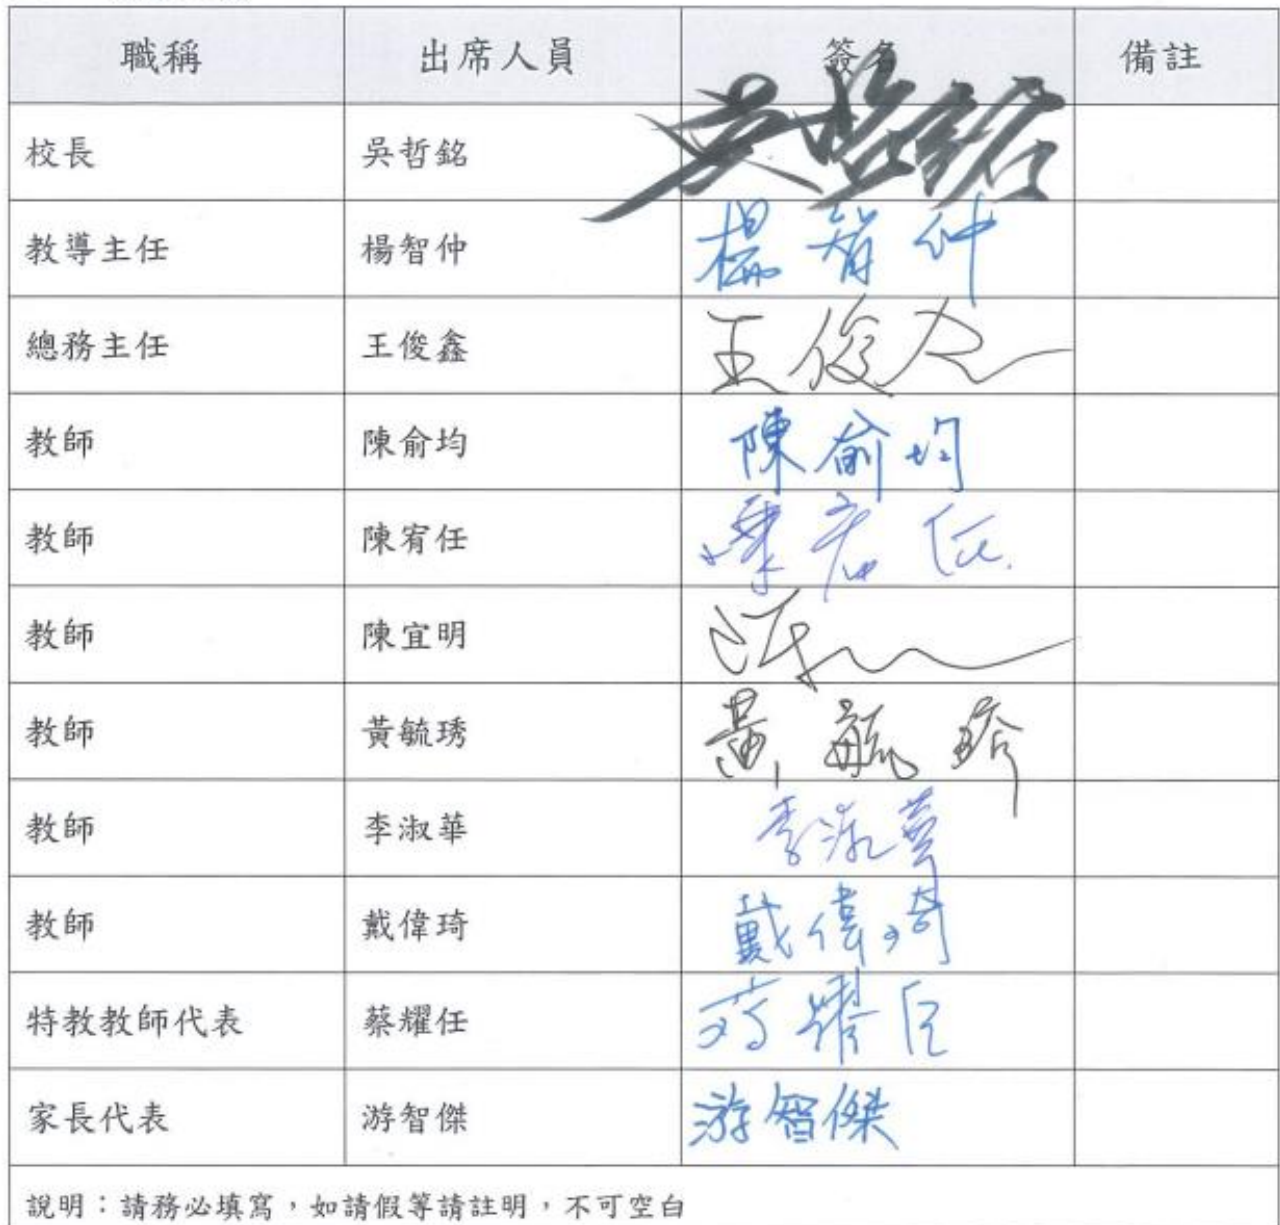 職稱 出席人員 簽名 備註
校長 吳哲銘 吳哲銘
教導主任 楊智仲 楊智仲
總務主任 王俊鑫 王俊
教師 陳俞均 陳俞均
教師 陳宥任 陳宥任
教師 陳宜明
教師 黃毓琇 黃毓琇
教師 李淑華 李淑華
教師 戴偉琦 戴偉琦
特教教師代表 蔡耀任 蔡耀任
家長代表 游智傑 游智傑
說明：請務必填寫，如請假等請註明，不可空白